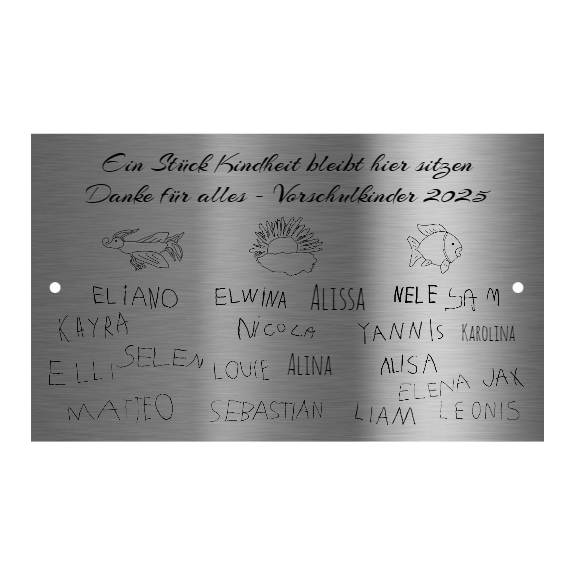 Ein Stück Kindheit bleibt hier sitzen
Danke für alles - Vorschulkinder 2025
ELiANO ELWiNA ALISSA NELE SAM
KAYRA NiCOLA YANNIS KAROLINA
ELLI SELEN LOUiE ALINA ALISA
ELENA JAX
MATTEO SEBASTIAN LIAM LEONIS